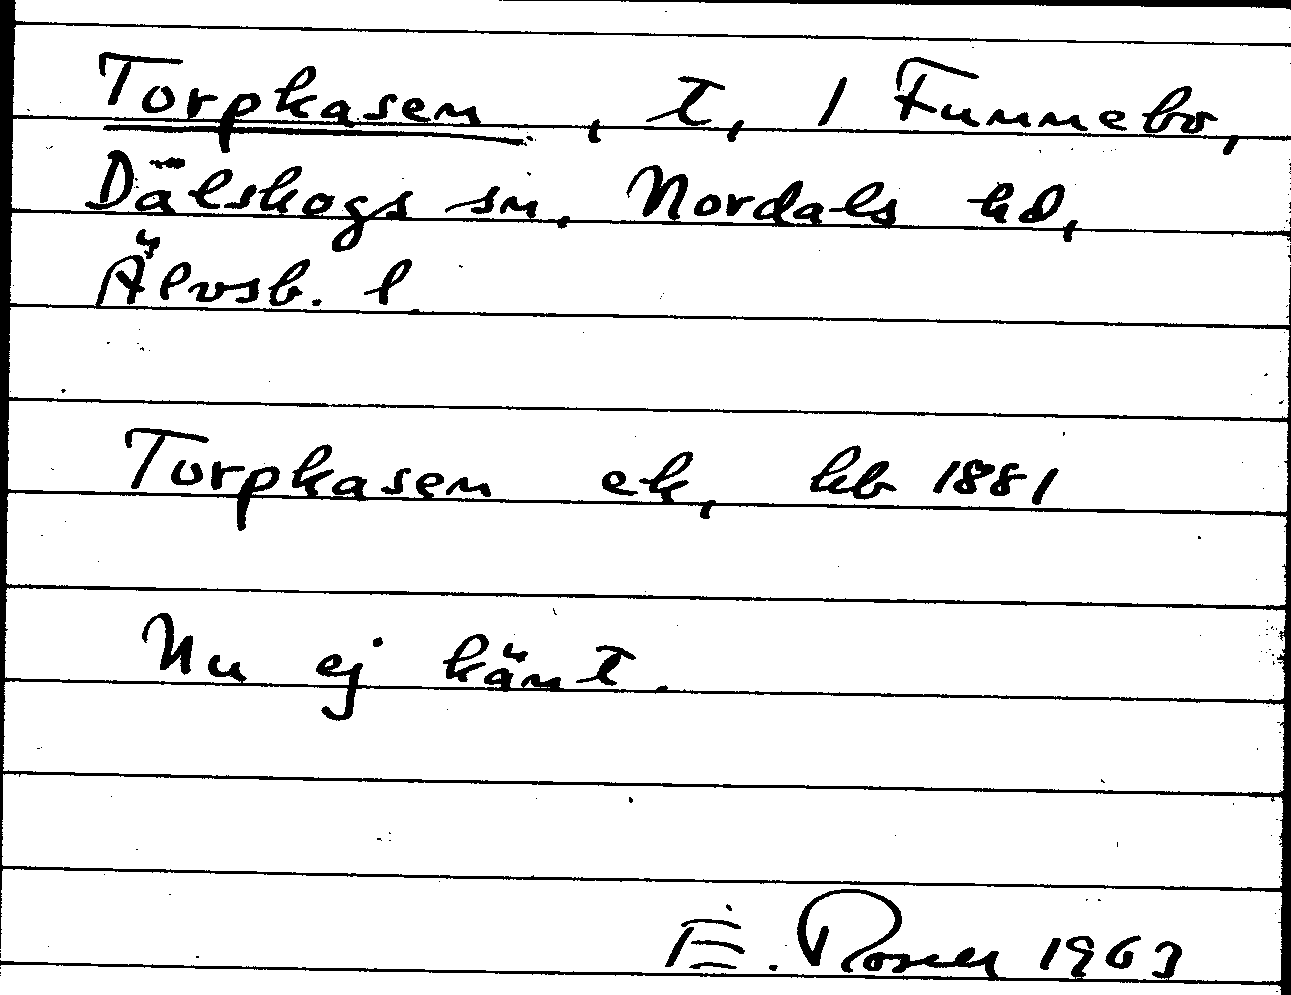 Torpkasen, t, / Funnebo,
Dälskogs sn. Nordals hd,
Älvsb. l.
Torpkasen ek, kb 1881
Nu ej känt.
E. Rosell 1963